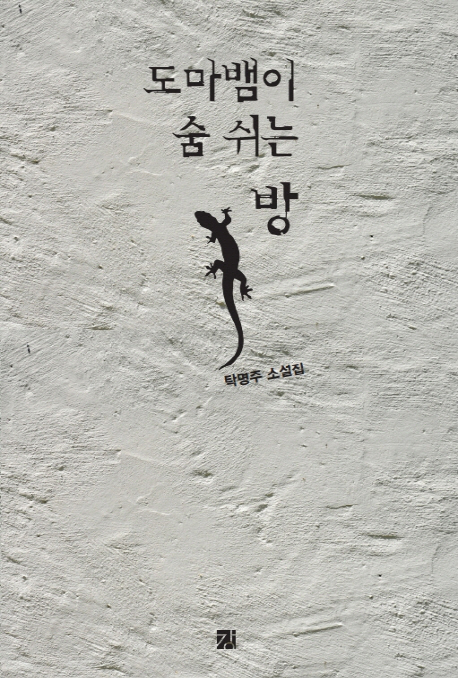 도마뱀이
숨 쉬는
방
탁명주 소설집